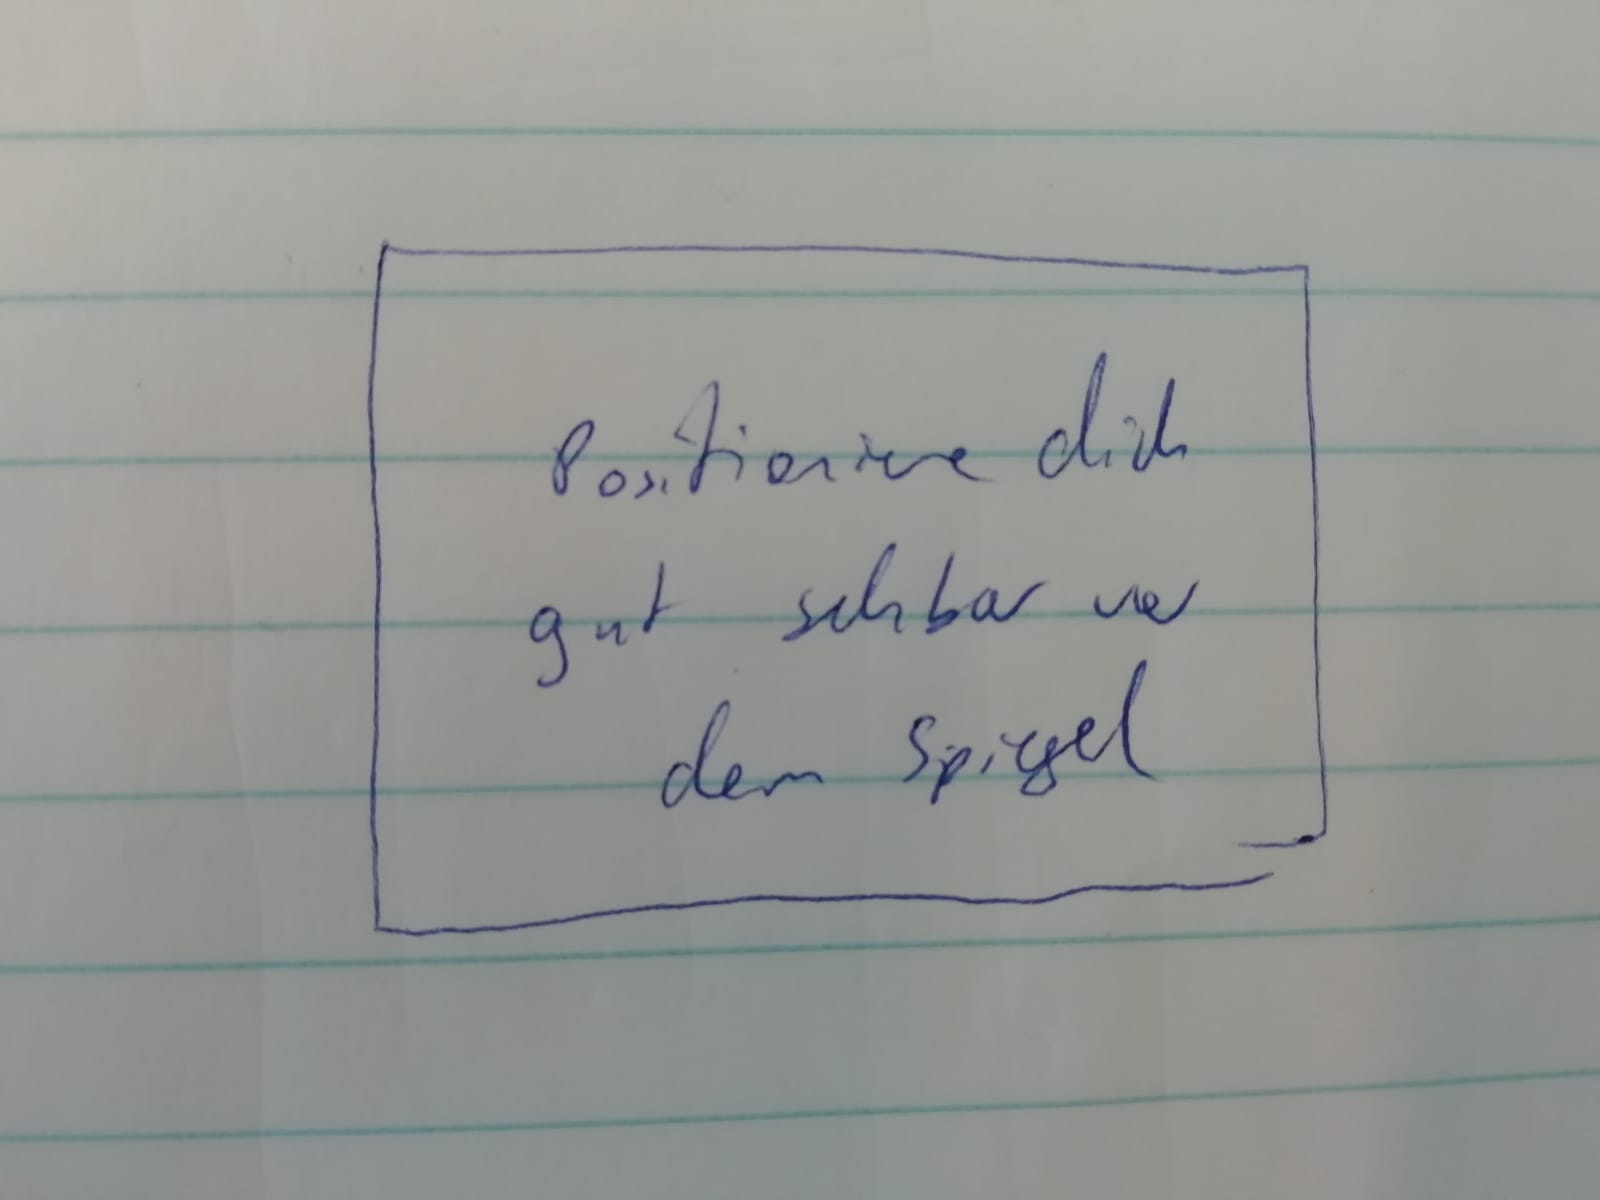 Positioniere dich
gut sehbar vor
dem Spiegel